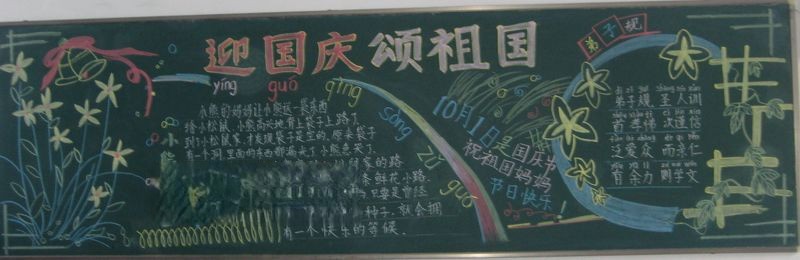 迎国庆 颂祖国
yíng guó qìng sòng zǔ guó
小熊的妈妈让小熊送一袋东西
给小松鼠，小熊高兴地背上袋子上路了
到了小松鼠家，才发现袋子是空的，原来袋子
有一个洞，里面的东西都漏光了，小熊急哭了
家的路
条鲜花小路
只要是曾经
种子，就会拥
有一个快乐的等候
10月1日是国庆节
祝祖国妈妈
节日快乐！
弟子规
弟子规 圣人训
首孝悌 次谨信
泛爱众 而亲仁
有余力 则学文